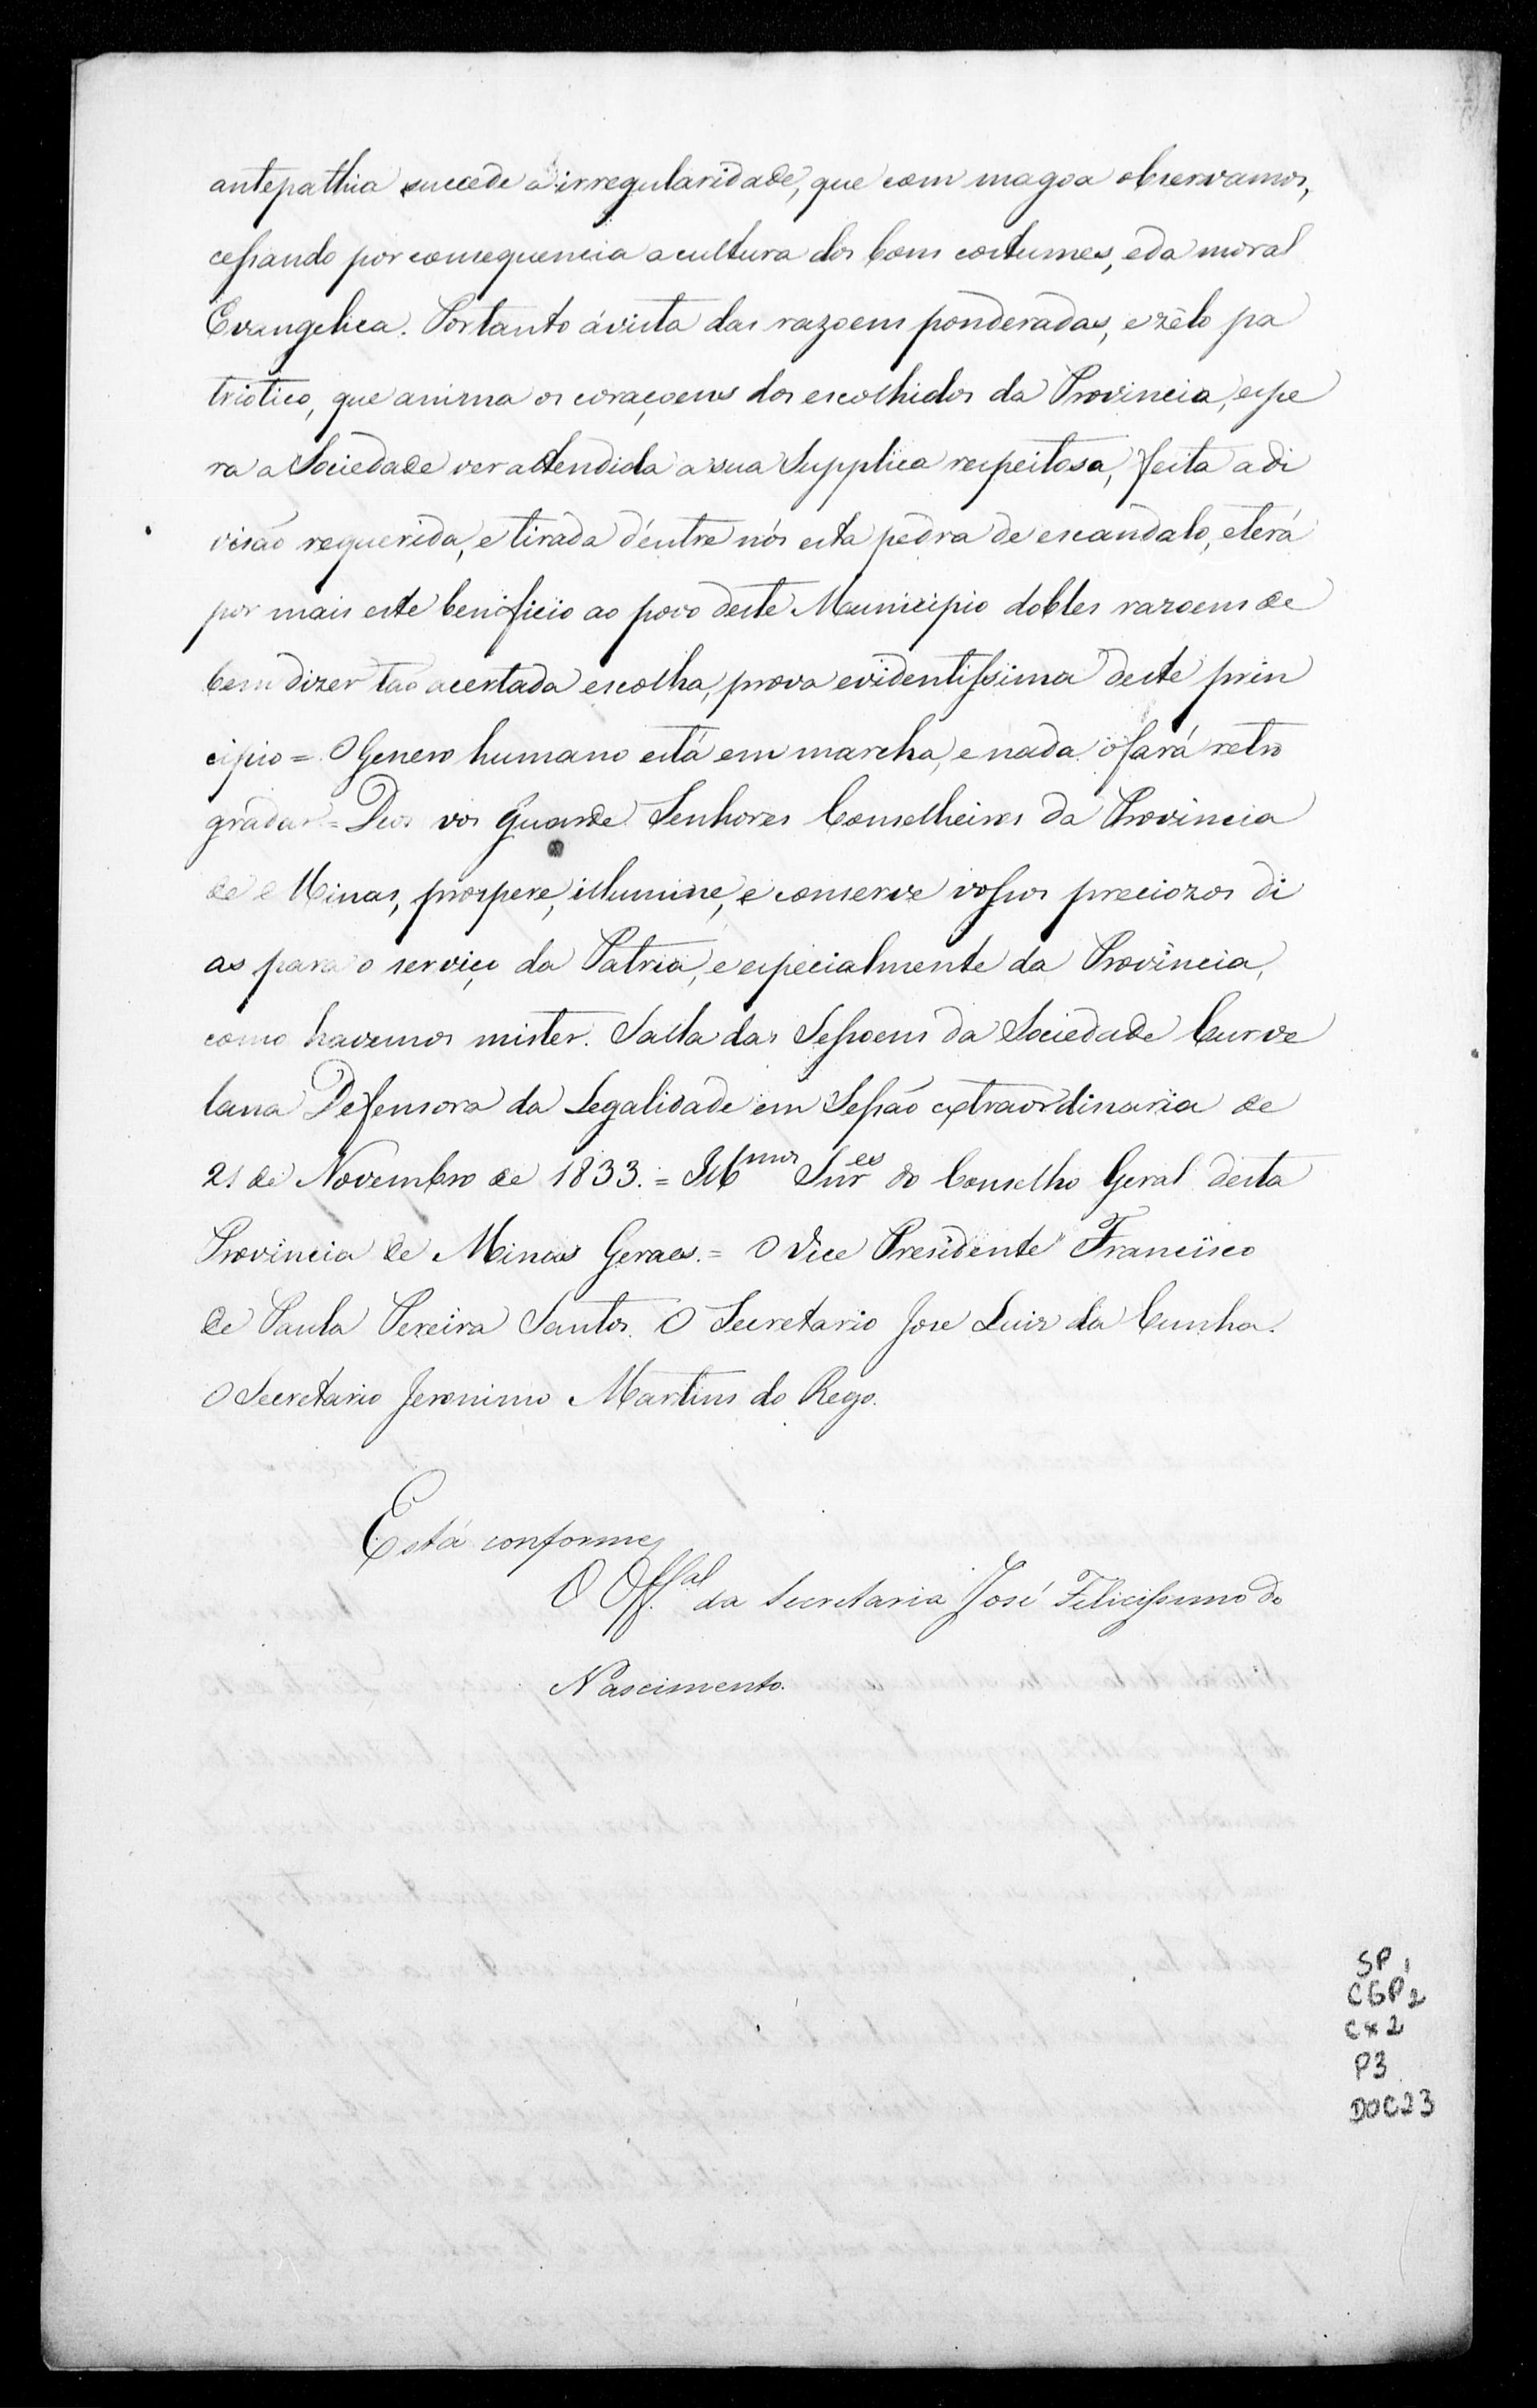 antepathia succede a irregularidade, que com magoa observamos,
cessando por consequencia a cultura dos bons costumes, e da moral
Evangelica. Portanto á vista das razoens ponderadas, e zêlo pa
triotico, que anima os coraçoens dos escolhidos da Provincia, espe
ra a Sociedade ver attendida a sua Supplica respeitosa, feita a di
visão requerida, e tirada d'entre nós esta pedra de escandalo, e terá
por mais este benificio ao povo deste Municipio dobles razoens de
bem dizer tão acertada escolha, prova evidentissima deste prin
cipio = O Genero humano está em marcha, e nada o fará retro
gradar = Deos vos Guarde Senhores Conselheiros da Provincia
de Minas, prospere, illumine, e conserve vossos preciozos di
as para o serviço da Patria, e especialmente da Provincia,
como havemos mister. Salla das Sessoens da Sociedade Curve
lana Defensora da Legalidade em Sessão extraordinaria de
21 de Novembro de 1833. = Illmos Snres do Conselho Geral desta
Provincia de Minas Geraes. = O Vice Presidente Francisco
de Paula Pereira Santos. O Secretario Jose Luiz da Cunha.
O Secretario Jeronimo Martins do Rego.
Está conforme
O Offal da Secretaria José Felicissimo do
Nascimento.
SP 1
CGP 2
CX 2
P3
DOC 23